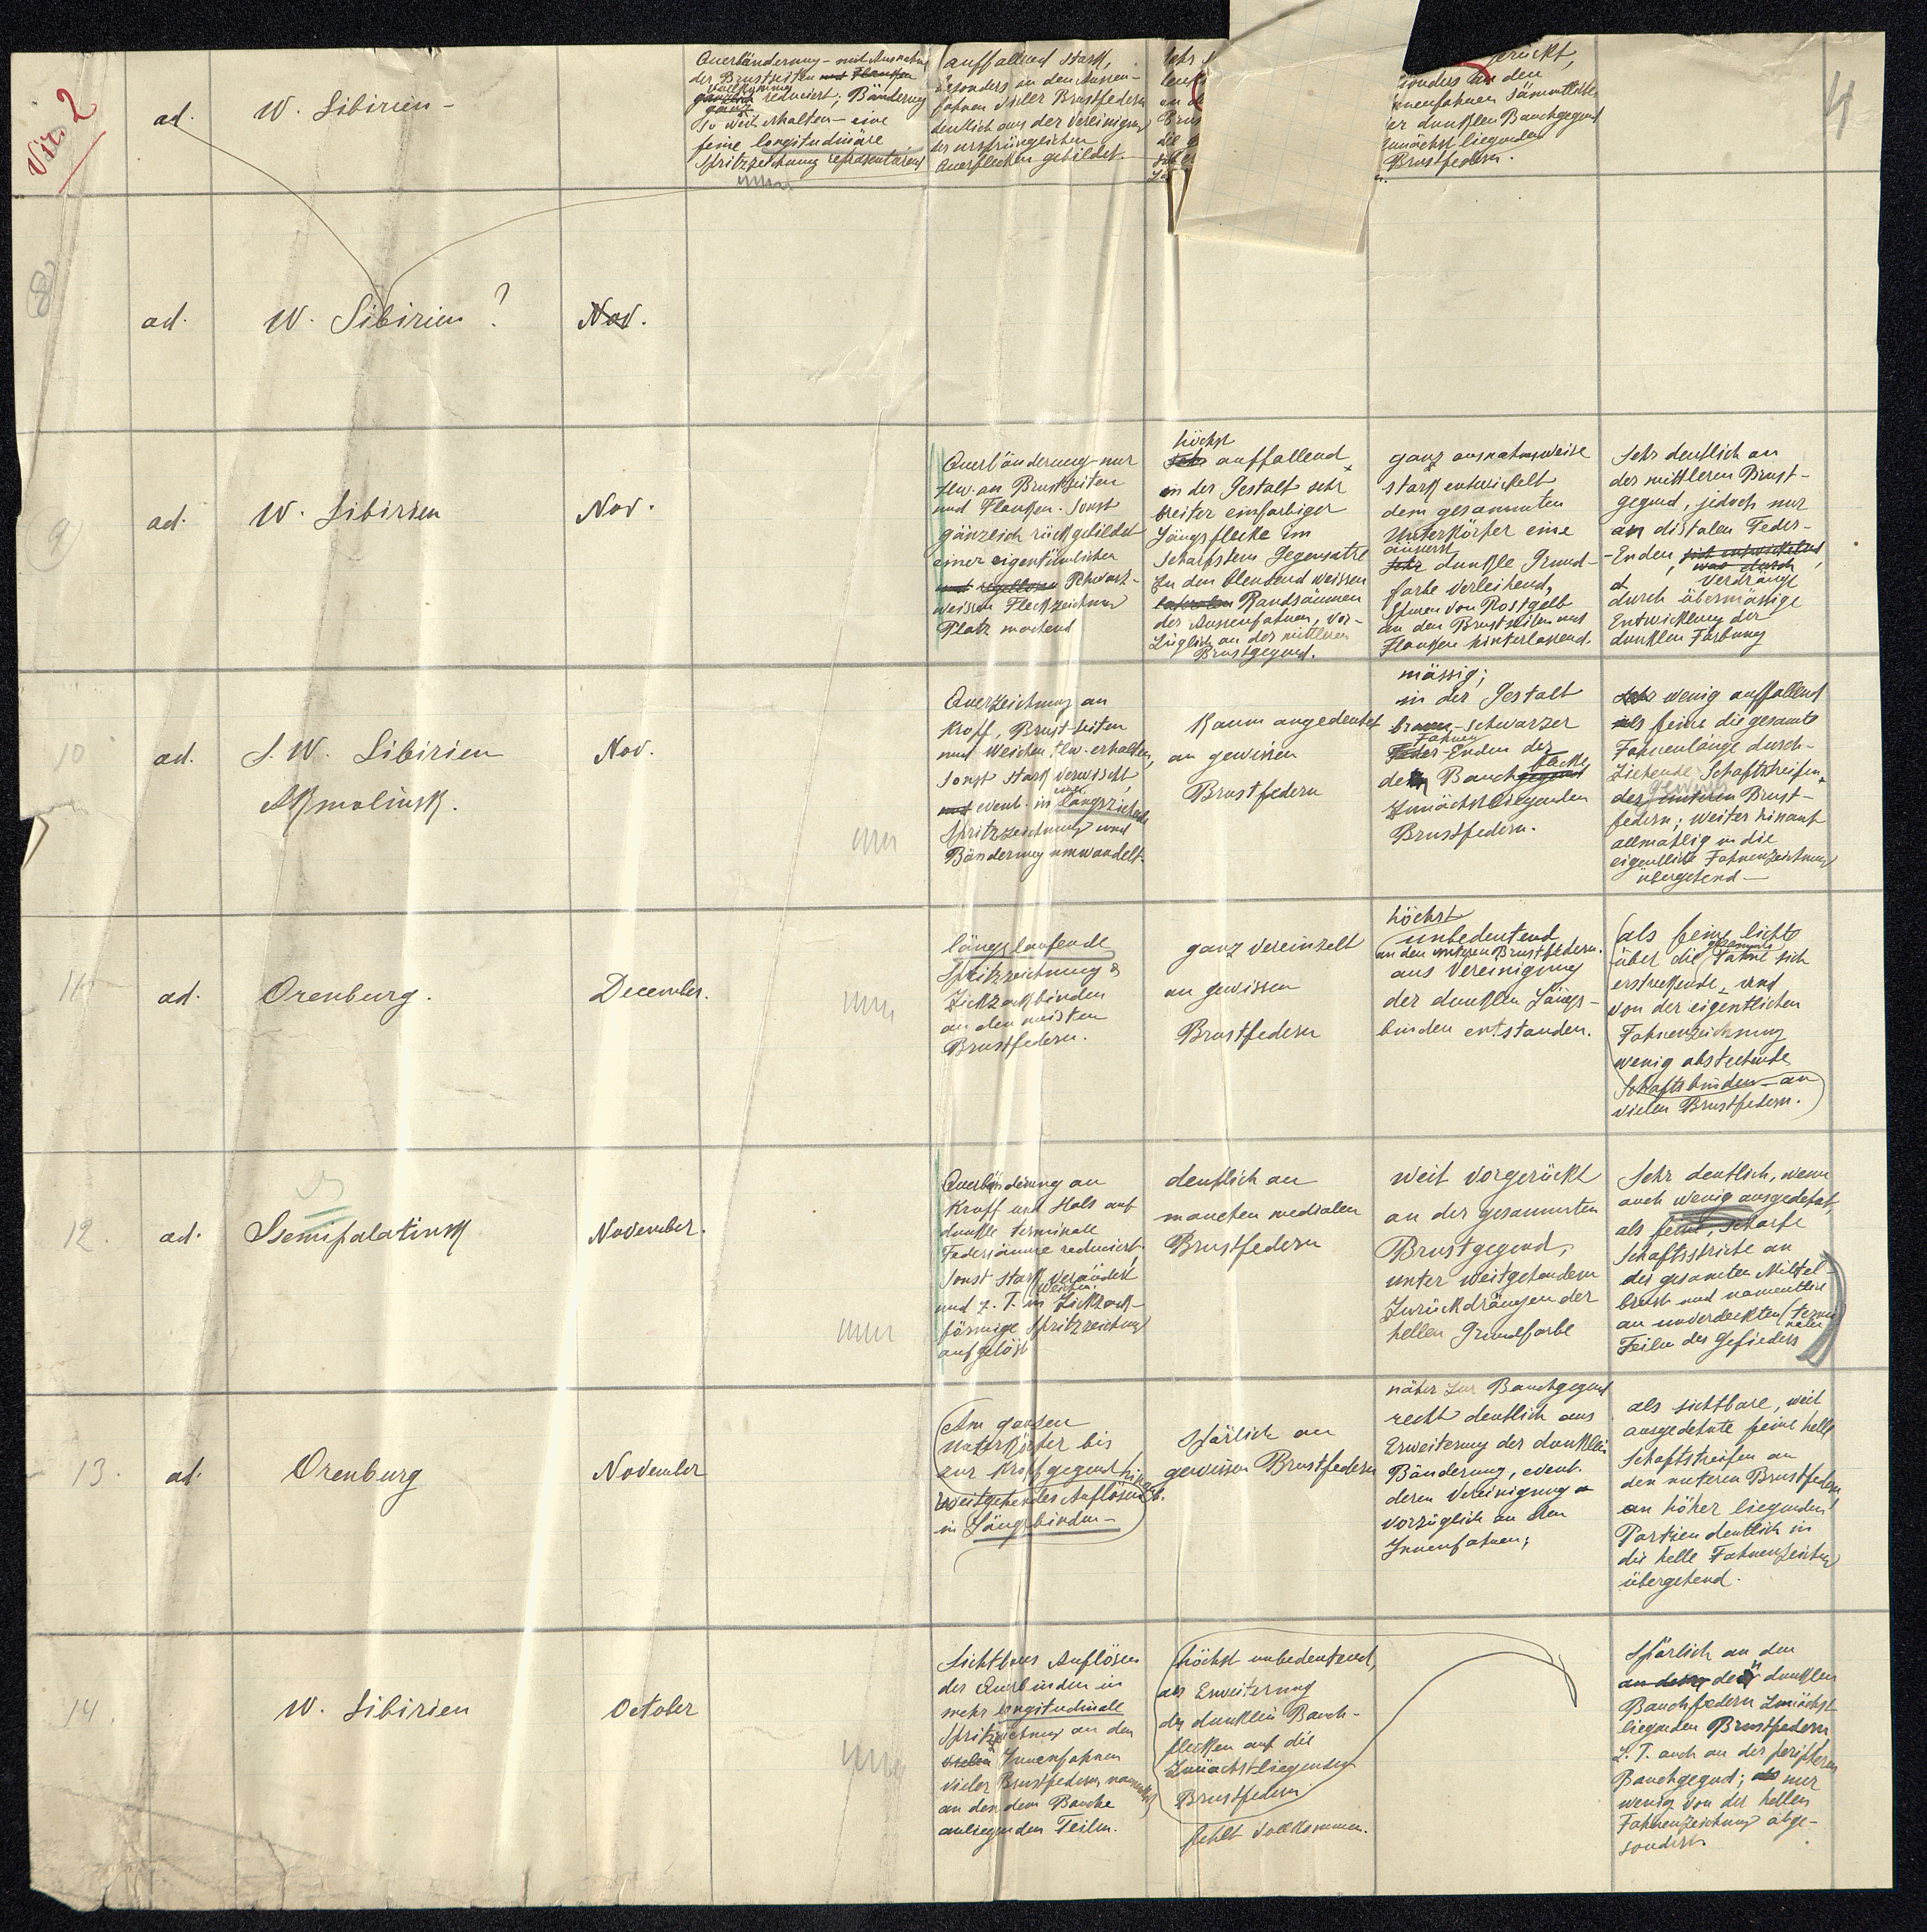 Vir 2
ad.
W. Sibirien –
Querbänderung – mit Ausnahme
der Brustseiten und Flanken
vollkommen
gänzlich reduciert; Bänderung
ganz
so weit erhalten – eine
feine longitudinäre
Spritzzeichnung repräsentierend
auffallend stark,
besonders an den Aussen-
fahnen vieler Brustfedern
deutlich aus der Vereinigung
der ursprünglichen
Querflecken gebildet.
sehr
rückt,
sonders an den
nenfahnen sämmtlicher
er dunklen Bauchgegend
zunächst liegenden
Brustfedern.
4
8
ad.
W. Sibirien ?
Nov.
9
ad.
W. Sibirien
Nov.
Querbänderung nur
tlw. an Brustseiten
und Flanken. Sonst
gänzlich rückgebildet
einer eigentümlichen
und regellosen schwarz-
weissen Fleckzeichnung
Platz machend
höchst
sehr auffallend
in der Gestalt sehr
breiter einfarbiger
Längsflecke im
schärfstem Gegensatze
zu den blendend weissen
lateralen Randsäumen
der Aussenfahnen, vor-
züglich an der mittleren
Brustgegend.
ganz ausnahmsweise
stark entwickelt
dem gesammten
Unterkörper eine
äusserst
sehr dunkle Grund-
farbe verleihend,
Spuren von Rostgelb
an den Brustseiten und
Flanken hinterlassend.
Sehr deutlich an
der mittleren Brust-
gegend, jedoch nur
an distalen Feder-
-Enden, sich entwickelnd,
was durch
verdrängt
durch übermässige
Entwicklung der
dunklen Färbung
10
ad.
S. W. Sibirien
Akmolinsk.
Nov.
Querzeichnung an
Kropf, Brust-seiten
und Weichen tlw. erhalten,
sonst stark verwischt,
und event. in eine längsziehende
Spritzzeichnung und
Bänderung umwandelt.
Kaum angedeutet
an gewissen
Brustfedern
mässig;
in der Gestalt
braun-schwarzer
Fahnen
Feder-Enden der
dem Bauchgegend flecke
zunächst liegenden
Brustfedern.
Sehr wenig auffallend
als feine die gesamte
Fahnenlänge durch-
ziehende Schaftstreifen
gewisser
der unteren Brust-
federn; weiter hinauf
allmählig in die
eigentliche Fahnenzeichnung
übergehend –
11
ad.
Orenburg.
December.
längslaufende
Spritzzeichnung &
Zickzackbinden
an den meisten
Brustfedern.
ganz vereinzelt
an gewissen
Brustfedern
höchst
unbedeutend
an den unteren Brustfedern.
aus Vereinigung
der dunklen Längs-
binden entstanden.
(als feine lichte
gesammte
über die Fahne sich
erstreckende, und
von der eigentlichen
Fahnenzeichnung
wenig abstechende
Schaftsbinden – an
vielen Brustfedern.)
12.
ad.
Ssemipalatinsk
November.
Querbänderung an
Kropf und Hals auf
dunkle terminale
Federsäume reduciert,
sonst stark verändert
und z. T. in Zickzack-
förmige Spritzzeichnung
aufgelöst
deutlich an
manchen medialen
Brustfedern
weit vorgerückt
an der gesammten
Brustgegend,
unter weitgehendem
Zurückdrängen der
hellen Grundfarbe
Sehr deutlich, wenn
auch wenig ausgedehnt,
als feine, scharfe
Schaftsstriche an
der gesamten Mittel-
brust und namentlich
an unverdeckten (termi-
nalen)
Teilen des Gefieders
13.
ad.
Orenburg
November
Am ganzen
Unterkörper bis
zur Kropfgegend hinauf
weitgehendes Auflösen
in Längsbinden –
Spärlich an
gewissen Brustfedern
näher zur Bauchgegend
recht deutlich aus
Erweiterung der dunklen
Bänderung, event.
deren Vereinigung
vorzüglich an den
Innenfahnen;
als sichtbare, weit
ausgedehnte feine helle
Schaftstreifen an
den unteren Brustfedern,
an höher liegenden
Partien deutlich in
die helle Fahnenzeichnung
übergehend.
14.
W. Sibirien
October
Sichtbares Auflösen
der Querbinden in
mehr longitudinale
Spritzzeichnung an den
vielen Innenfahnen
vieler Brustfedern namentlich
an den dem Bauche
anliegenden Teilen.
höchst unbedeutend,
als Erweiterung
der dunklen Bauch-
flecken auf die
zunächst liegenden
Brustfedern
fehlt vollkommen.
Spärlich an den
an den der dunklen
Bauchfedern zunächst
liegenden Brustfedern
z. T. auch an der peripheren
Bauchgegend; als nur
wenig von der hellen
Fahnenzeichnung abge-
sondert